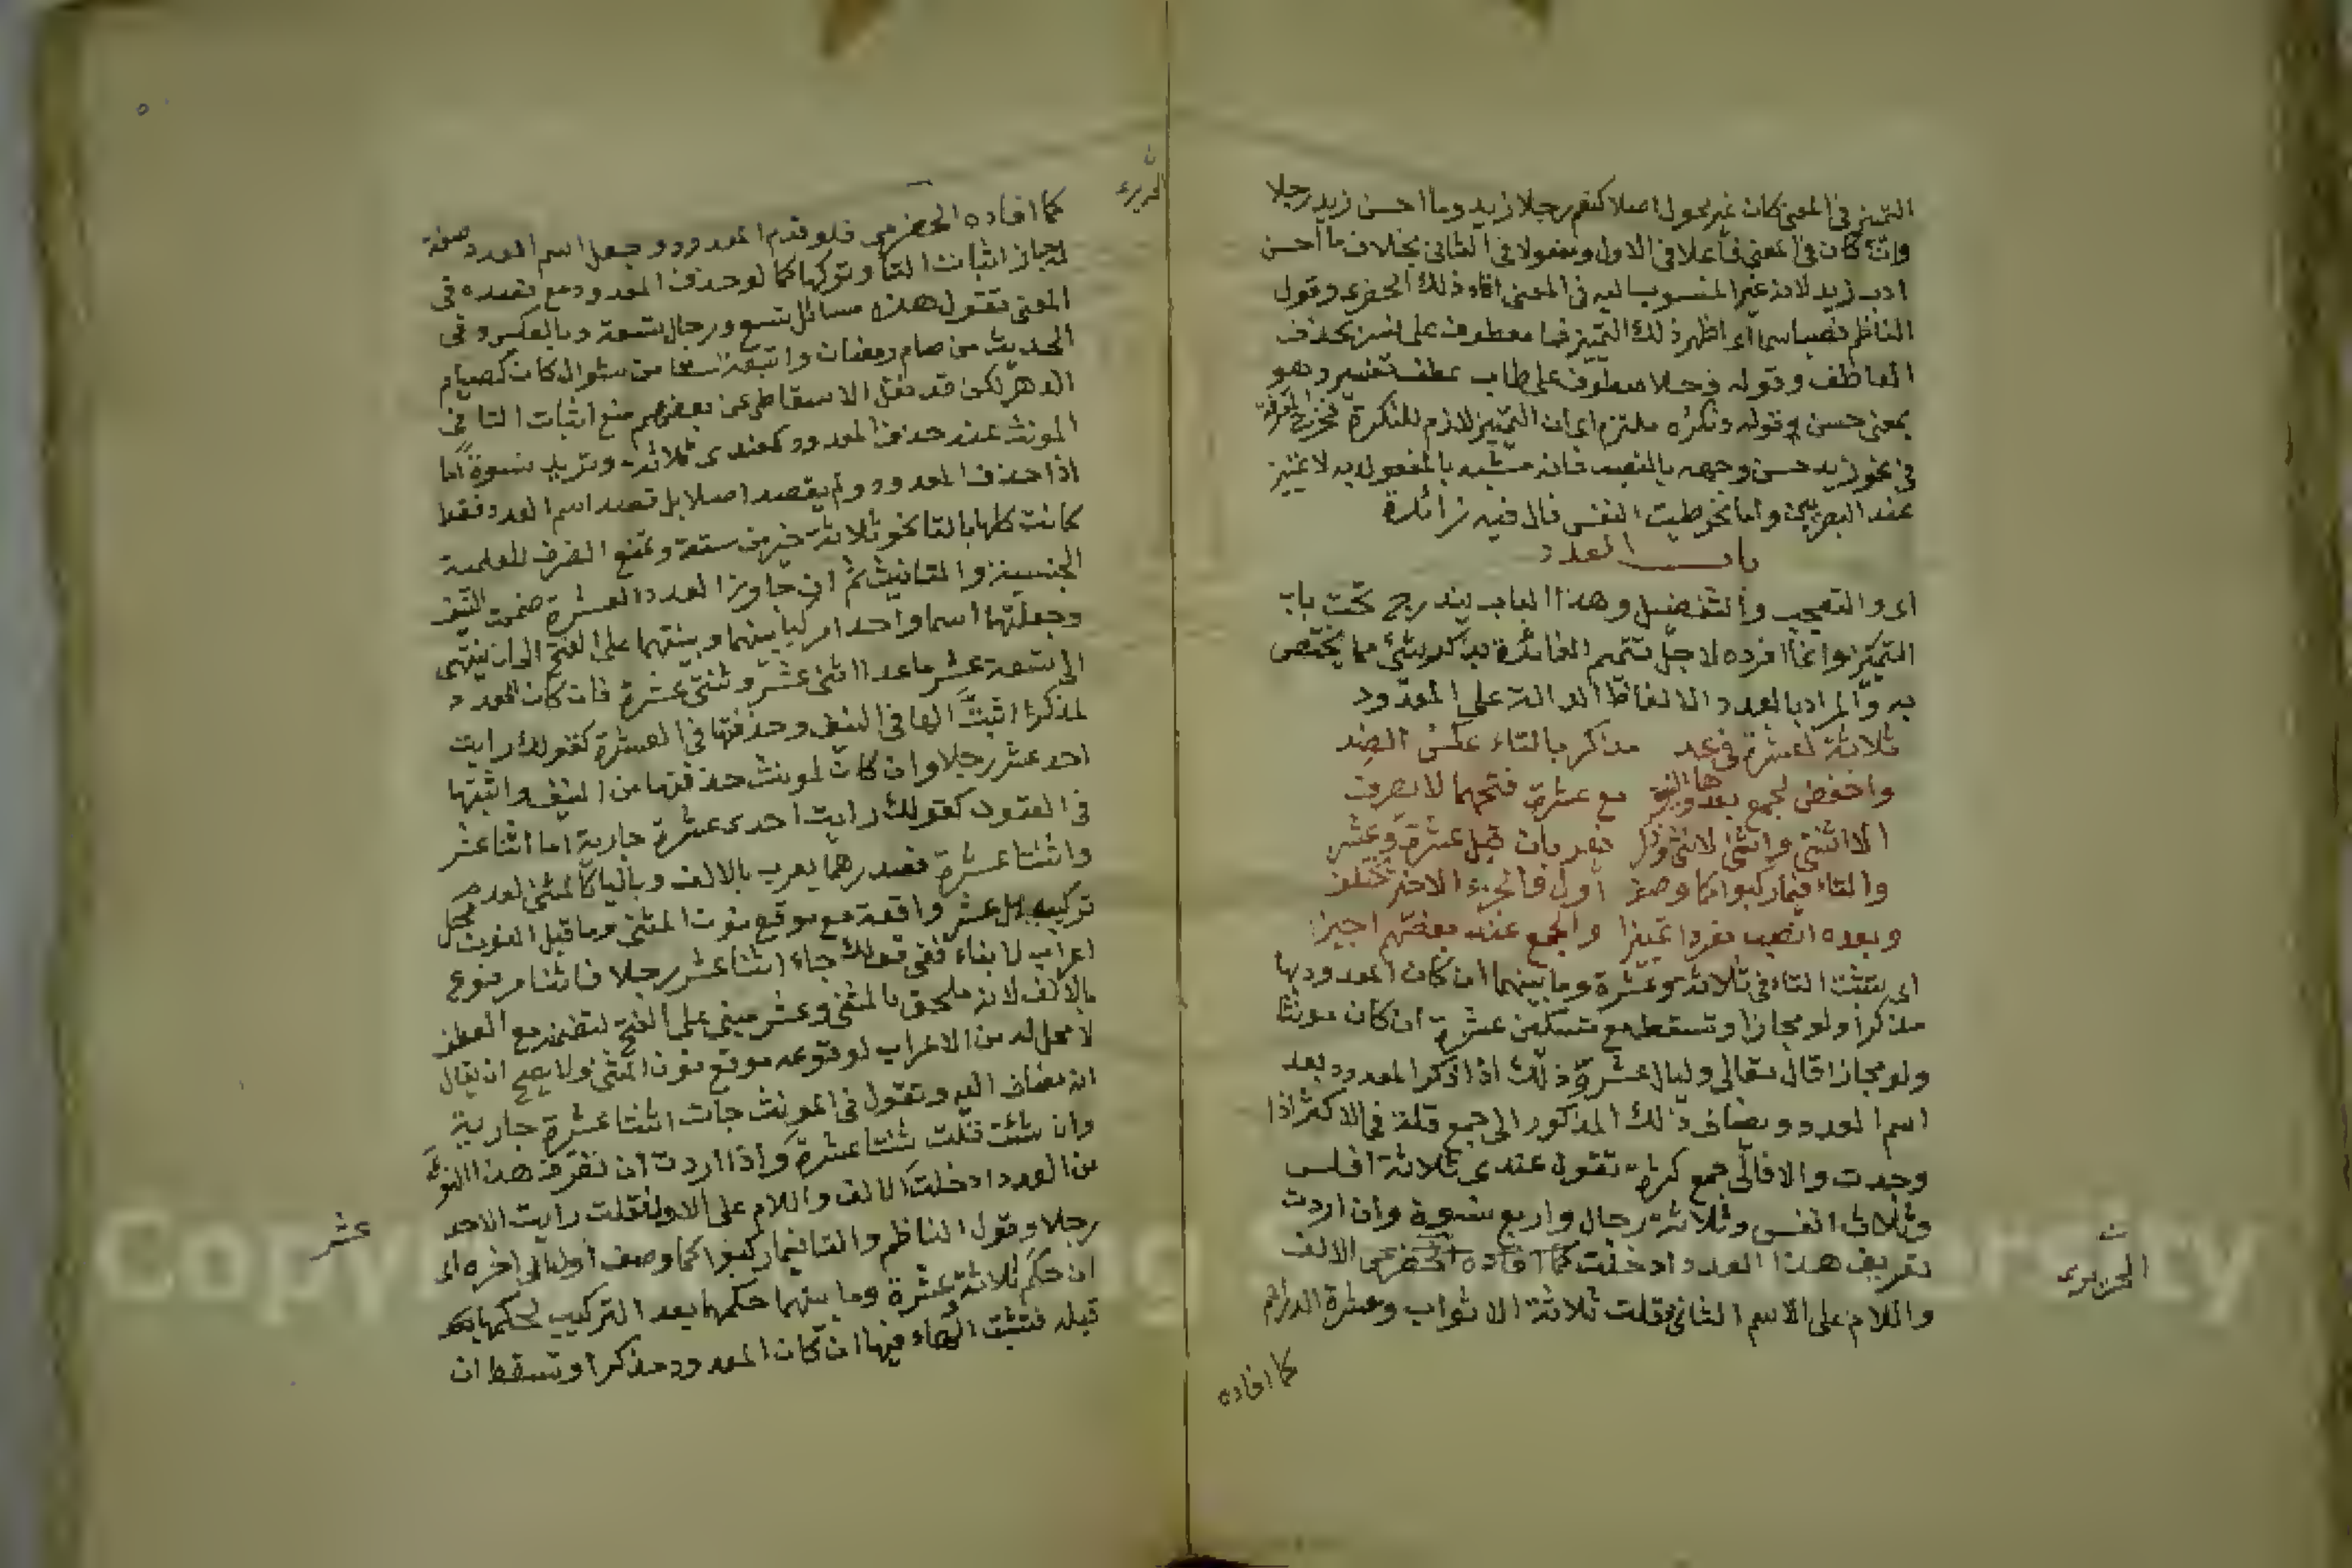 التمييز في المعنى كان غير محول اصلا كنعم رجلا زيد وما احسن زيد رجلا
وان كان في المعنى فاعلا في الاول ومفعولا في الثاني بخلاف ما احسن
ادب زيد لانه غير المنسوب اليه في المعنى افاد ذلك الحضرمي وقول
الناظم نصبا سما اى اظهر ذلك التمييز فما معطوف على بحذف
العاطف وقوله وحلا معطوف على طاب عطف تفسير وهو
بمعنى حسن وقوله ونكره ملتزم اى ان التمييز لازم للنكرة
في نحو زيد حسن وجهه بالنصب فانه مشبه بالمفعول به لا تمييز
عند البصريين واما نحو طبت النفس فال فيه زائدة
باب العدد
اى والتعجب والتفضيل وهذا الباب يندرج تحت باب
التمييز وانما افرده لاجل تتميم الفائدة بذكر شئ مما يختص
به والمراد بالعدد الالفاظ الدالة على المعدود
ثلاثة لعشرة في عد مذكر بالتاء عكس الضد
واخفض لجمع بعدها مع عشرة فتحهما لا يصرف
الا اثنتى واثنى لانثى وذكر قبل عشرة وعشر
والتاء فيما ركبوا كما وصف اول فالجزء الاخير يختلف
وبعده انصب مفردا تمييزا والجمع عند بعضهم اجيزا
اى تثبت التاء في ثلاثة وعشرة وما بينهما ان كان المعدود بها
مذكرا ولو مجازا وتسقط مع تسكين عشرة ان كان مونثا
ولو مجازا قال تعالى وليال عشر وذلك اذا ذكر المعدود بعد
اسم العدد ويضاف ذلك المذكور الى جمع قلة في الاكثر اذا
وجدت والا فالى جمع كثرة تقول عندى ثلاثة افلس
وثلاث انفس وثلاثة رجال واربع نسوة وان اردت
تعريف هذا العدد ادخلت كما افاده الحضرمي الالف
واللام على الاسم الثاني فقلت ثلاثة الاثواب وعشرة الدراهم
ن
الحريرى
كما افاده
ن
الحريرى
كما افاده الحضرمي فلو قدم المعدود وجعل اسم العدد صفة
له جاز اثبات التا وتركها كما لو حذف المعدود مع قصده في
المعنى تقول هذه مسائل تسع ورجال تسعة وبالعكس وفي
الحديث من صام رمضان واتبعه ستا من شوال كان كصيام
الدهر لكن قد نقل الاسقاطي عن بعضهم منع اثبات التا في
المونث عند حذف المعدود كعندى ثلاثة وتريد نسوة اما
اذا حذف المعدود ولم يقصد اصلا بل قصد اسم العدد فقط
كانت كلها بالتا نحو ثلاثة خير من ستة وتمنع الصرف للعلمية
الجنسية والتانيث ثم ان جاوز العدد العشرة ضممت النيف
وجعلتهما اسما واحدا مركبا بينهما وبنيتهما على الفتح الى ان ينتهى
الى تسعة عشر ما عدا اثنى عشر وثنتى عشرة فان كان العدد
لمذكر اثبت الها في النيف وحذفتها في العشرة كقولك رايت
احد عشر رجلا وان كان لمونث حذفتها من النيف واثبتها
في العقود كقولك رايت احدى عشرة جارية اما اثنا عشر
واثنتا عشرة فصدرهما يعرب بالالف وباليا كالمثنى لعدم
تركيبه بل عشر واقعة موقع نون المثنى وما قبل النون محل
اعراب لا بناء ففي قولك جاء اثنا عشر رجلا فاثنا مرفوع
بالالف لانه ملحق بالمثنى وعشر مبني على الفتح لتضمنه مع العطف
لا محل له من الاعراب لوقوعه موقع نون المثنى ولا يصح ان يقال
انه مضاف اليه وتقول في المونث جات اثنتا عشرة جارية
وان شئت قلت ثنتا عشرة واذا اردت ان تعرف هذا النوع
من العدد ادخلت الالف واللام على الاول فقلت رايت الاحد
عشر
رجلا وقول الناظم والتا فيما ركبوا كما وصف اول الى اخره اى
ان حكم ثلاثة عشرة وما بينهما حكمها بعد التركيب كحكمها
قبله فتثبت الهاء فيها ان كان المعدود مذكرا وتسقط ان